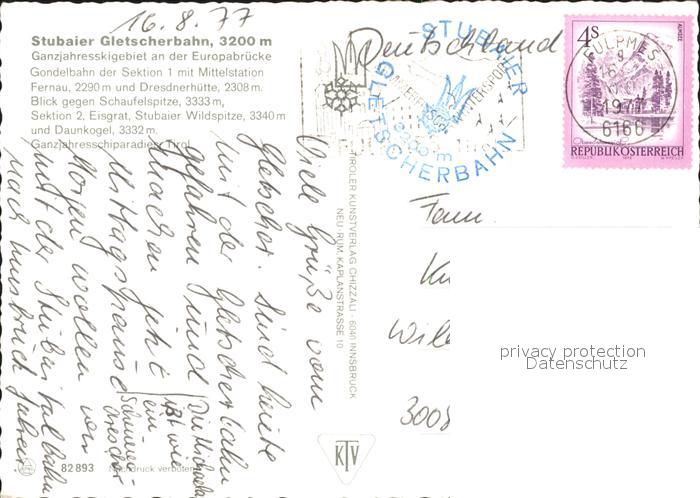 16.8.77
Stubaier Gletscherbahn, 3200 m
Ganzjahresskigebiet an der Europabrücke
Gondelbahn der Sektion 1 mit Mittelstation
Fernau, 2290 m und Dresdnerhütte, 2308 m.
Blick gegen Schaufelspitze, 3333 m,
Sektion 2, Eisgrat, Stubaier Wildspitze, 3340 m
und Daunkogel, 3332 m.
Ganzjahresschiparadies Tirol
Viele Grüße vom
Gletscher. Sind heute
mit der Gletscherbahn
gefahren und
machen jetzt
Mittagspause
Morgen wollen wir
mit der Stubaitalbahn
nach Innsbruck fahren
Die Michaela
ist wie
ein
82 893
Nachdruck verboten
TIROLER KUNSTVERLAG CHIZZALI · 6040 INNSBRUCK
NEU-RUM, KAPLANSTRASSE 10
KTV
Deutschland
STUBAIER
GLETSCHERBAHN
WINTERSPORT
FULPMES
1977
6166
4S
ALMSEE
REPUBLIK ÖSTERREICH
Fam.
Wil
3008
privacy protection
Datenschutz